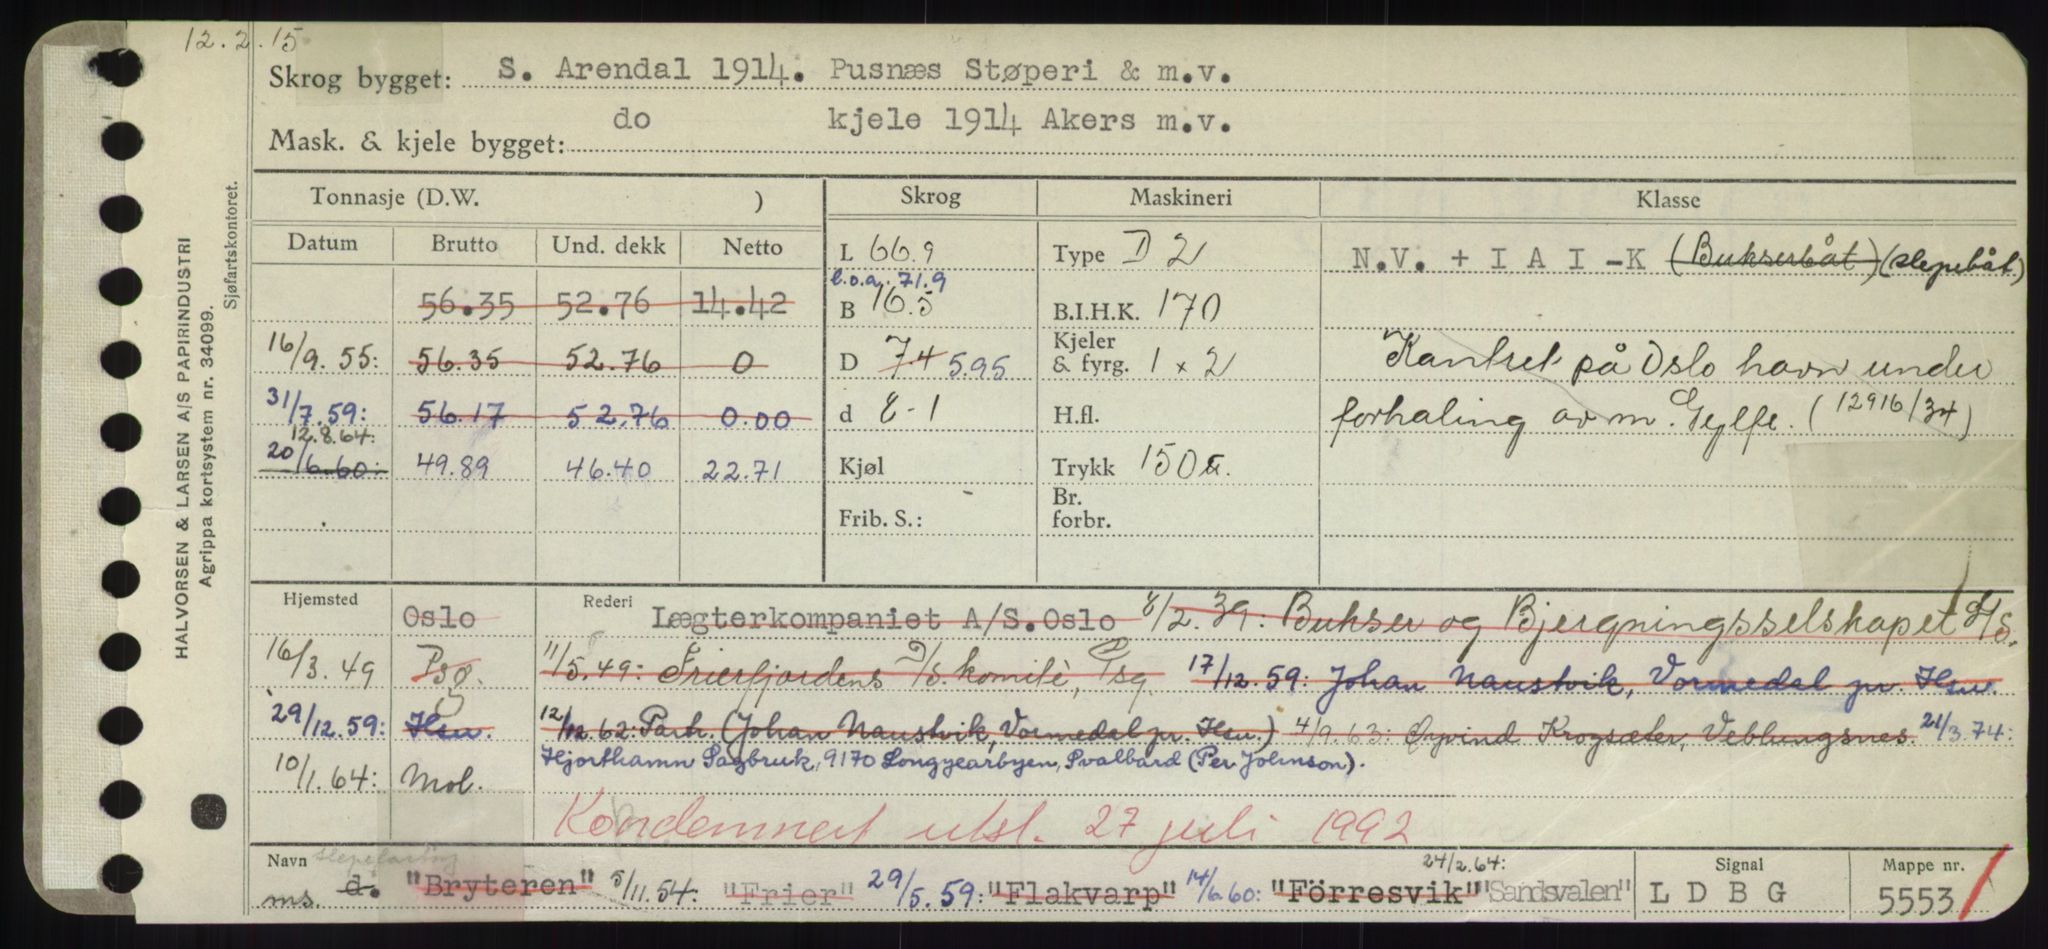 12.2.15
Skrog bygget: S. Arendal 1914. Pusnæs Støperi & m.v.
Mask. & kjele bygget: do kjele 1914 Akers m.v.
HALVORSEN & LARSEN A/S PAPIRINDUSTRI
Agrippa kortsystem nr. 34099.
Sjøfartskontoret.
Tonnasje (D.W. ) Skrog Maskineri Klasse
Datum Brutto Und. dekk Netto L 66.9 Type D 2 N.V. + I A I - K (Bukserbåt) (slepebåt)
l.o.a. 71.9
56.35 52.76 14.42 B 16.5 B.I.H.K. 170
16/9.55: 56.35 52.76 0 D 7.4 5.95 Kjeler & fyrg. 1 x 2 Kantret på Oslo havn under
31/7.59: 56.17 52.76 0.00 d 8-1 H.fl. forhaling av m. Gylfe. (12916/34)
12.8.64:
20/6.60: 49.89 46.40 22.71 Kjøl Trykk 150
Frib. S.: Br. forbr.
Hjemsted Oslo Rederi Lægterkompaniet A/S. Oslo 8/2.39: Bukser og Bjergningsselskapet A/S.
16/3.49 Psg. 11/5.49: Frierfjordens D/S. komitè, Psg 17/12.59: Johan Naustvik, Vormedal pr. Hsu.
29/12.59: Hsu. 12/12.62: Partr. (Johan Naustvik, Vormedal pr. Hsu.) 4/9.63: Øyvind Krogsæter, Veblungsnes. 21/3.74:
10/1.64: Mol. Hjorthamn Sagbruk, 9170 Longyearbyen, Svalbard (Per Johnson).
Kondemnert utsl. 27 juli 1992
Navn 24/2.64: Signal Mappe nr.
ms. d. "Bryteren" 5/11.54: "Frier" 29/5.59: "Flakvarp" 14/6.60: "Förresvik" "Sandsvalen" L D B G 5553